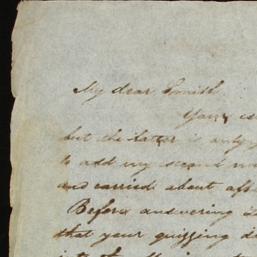 My dear Smith,
Yours is
but the latter is only
to add my second
and carried about
Before answering
that your quizzing